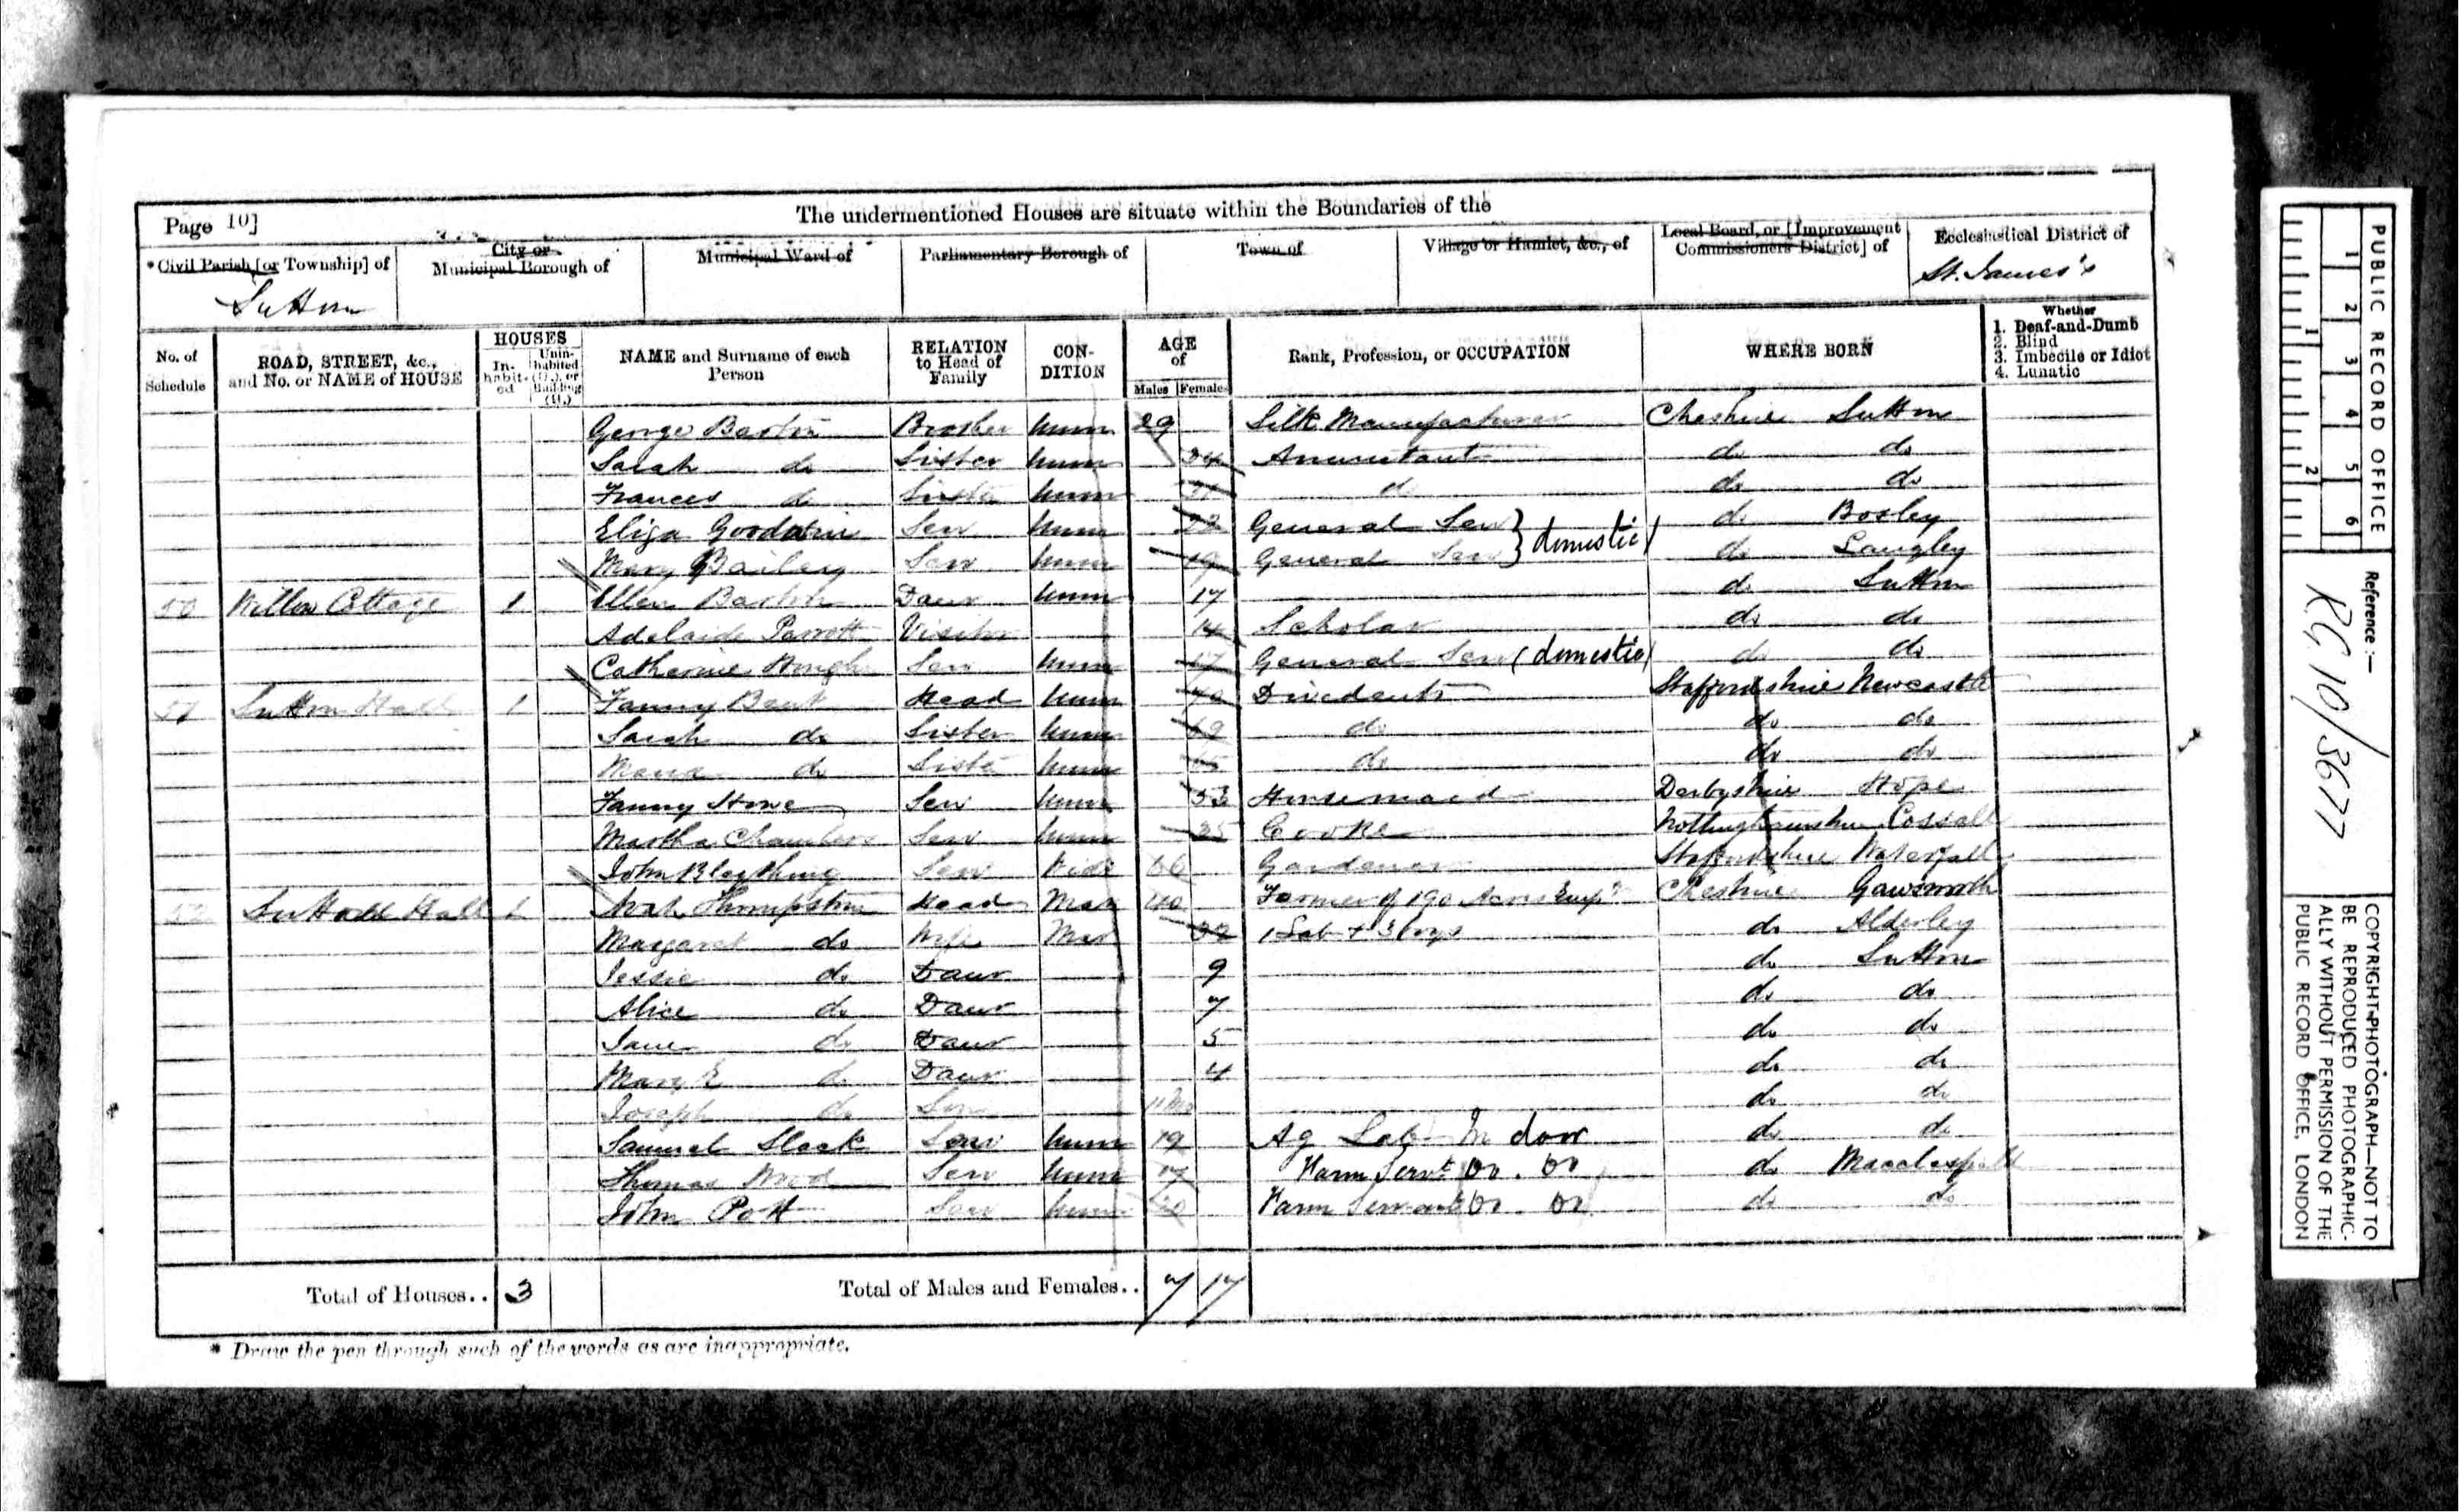 The undermentioned Houses are situate within the Boundaries of the
Page 10]
*Civil Parish [or Township] of
Sutton
City or Municipal Borough of
Municipal Ward of
Parliamentary Borough of
Town of
Village or Hamlet, &c., of
Local Board, or [Improvement Commissioners District] of
Ecclesiastical District of
St. James's
No. of Schedule
ROAD, STREET, &c., and No. or NAME of HOUSE
HOUSES
In-habit-ed
Unin-habited (U.), or Building (B.)
NAME and Surname of each Person
RELATION to Head of Family
CON-DITION
AGE of
Males Females
Rank, Profession, or OCCUPATION
WHERE BORN
Whether
1. Deaf-and-Dumb
2. Blind
3. Imbecile or Idiot
4. Lunatic
George Barton Brother Unm 29 Silk Manufacturer Cheshire Sutton
Sarah do Sister Unm Annuitant do do
Frances do Sister Unm do do do
Eliza Goodwin Serv Unm 22 General Serv } domestic do Bosley
Mary Bailey Serv Unm 19 General Serv } do Langley
50 Willow Cottage 1 Ellen Barton Daur Unm 17 do Sutton
Adelaide Parrott Visitor 14 Scholar do do
Catherine Hough Serv Unm 17 General Serv (domestic) do do
51 Sutton Hall 1 Fanny Brent Head Unm 70 Dividents Staffordshire Newcastle
Sarah do Sister Unm 69 do do do
Maria do Sister Unm do do do
Fanny Howe Serv Unm 53 Housemaid Derbyshire Hope
Martha Chambers Serv Unm 25 Cooke Nottinghamshire Cossall
John Serv Widr 66 Gardener Staffordshire Waterfall
52 Sutton Hall 1 Noah Thompston Head Mar 40 Farmer of 190 Acres Empg Cheshire Gawsworth
Margaret do Wife Mar 1 Lab + 3 boys do Alderley
Jessie do Daur 9 do Sutton
Alice do Daur 7 do do
Jane do Daur 5 do do
Mary E do Daur 4 do do
Joseph do Son 11 Mo do do
Samuel Slack Serv Unm 19 Ag Lab In door do do
Thomas Wood Serv Unm 17 Farm Servt Do. Do do Macclesfield
John Pott Serv Unm Farm Servant Do. Do do do
Total of Houses.. 3
Total of Males and Females.. 7 17
* Draw the pen through such of the words as are inappropriate.
PUBLIC RECORD OFFICE
1 2 3 4 5 6
1 2
Reference:—
RG 10/3677
COPYRIGHT PHOTOGRAPH—NOT TO
BE REPRODUCED PHOTOGRAPHIC-
ALLY WITHOUT PERMISSION OF THE
PUBLIC RECORD OFFICE, LONDON